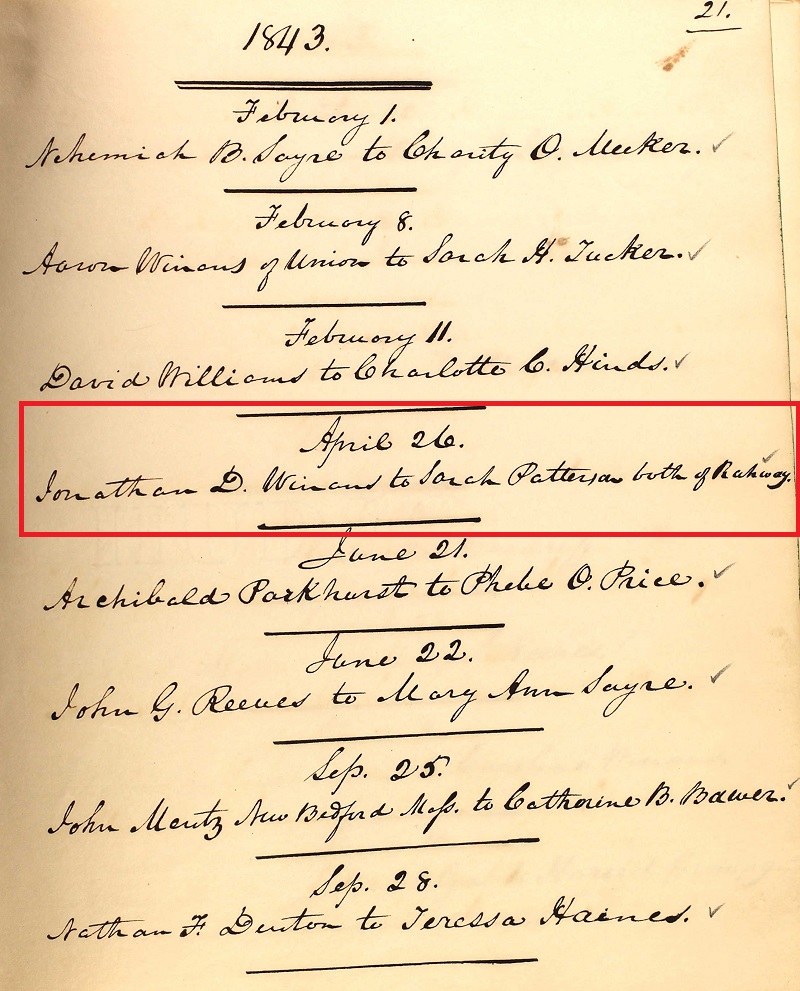 21.
1843.
February 1.
Nehemiah B. Sayre to Charity O. Meeker.
February 8.
Aaron Winans of Union to Sarah H. Tucker.
February 11.
David Williams to Charlotte C. Hinds.
April 26.
Jonathan D. Winans to Sarah Patterson both of Rahway.
June 21.
Archibald Parkhurst to Phebe O. Price.
June 22.
John G. Reeves to Mary Ann Sayre.
Sep. 25.
John Mentz New Bedford Mass. to Catherine B. Bawer.
Sep. 28.
Nathan F. Denton to Teressa Haines.